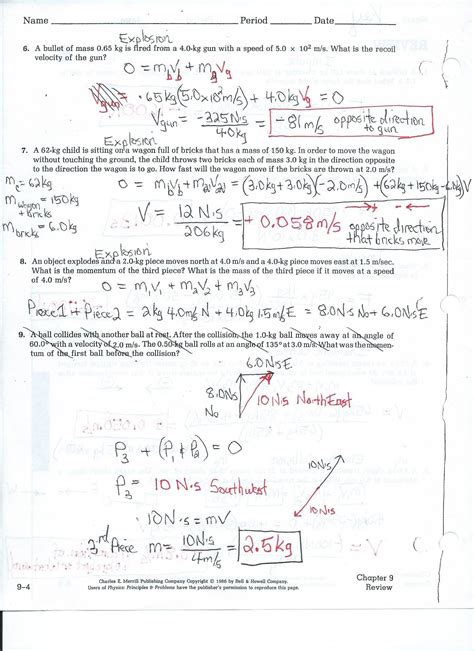 Name Period Date
Explosion
6. A bullet of mass 0.65 kg is fired from a 4.0-kg gun with a speed of 5.0 × 10² m/s. What is the recoil
velocity of the gun?
O = m_b V_b + m_g V_g
.65kg(5.0x10² m/s) + 4.0kg V_g = 0
V_gun = -325 N·s / 4.0kg = -81 m/s opposite direction to gun
Explosion
7. A 62-kg child is sitting on a wagon full of bricks that has a mass of 150 kg. In order to move the wagon
without touching the ground, the child throws two bricks each of mass 3.0 kg in the direction opposite
to the direction the wagon is to go. How fast will the wagon move if the bricks are thrown at 2.0 m/s?
m_c = 62kg
O = m_1V_1 + m_2V_2 = (3.0kg+3.0kg)(-2.0m/s) + (62kg+150kg-6kg)V
m wagon + bricks = 150kg
m bricks = 6.0kg
V = 12 N·s / 206kg = +0.058 m/s opposite direction that bricks move
Explosion
8. An object explodes and a 2.0-kg piece moves north at 4.0 m/s and a 4.0-kg piece moves east at 1.5 m/sec.
What is the momentum of the third piece? What is the mass of the third piece if it moves at a speed
of 4.0 m/s?
O = m_1V_1 + m_2V_2 + m_3V_3
Piece1 + Piece2 = 2kg 4.0m/s N + 4.0kg 1.5m/s E = 8.0N·s No + 6.0N·s E
9. A ball collides with another ball at rest. After the collision, the 1.0-kg ball moves away at an angle of
60.0° with a velocity of 2.0 m/s. The 0.50-kg ball rolls at an angle of 135° at 3.0 m/s. What was the momen-
tum of the first ball before the collision?
6.0N·s E
8.0Ns No
10N·s NorthEast
P_3 + (P_1 & P_2) = O
P_3 = 10 N·s Southwest
10N·s
10N·s
10N·s = mV
3rd Piece m = 10N·s / 4m/s = 2.5kg
Charles E. Merrill Publishing Company Copyright © 1986 by Bell & Howell Company.
Users of Physics: Principles & Problems have the publisher's permission to reproduce this page.
9-4
Chapter 9
Review